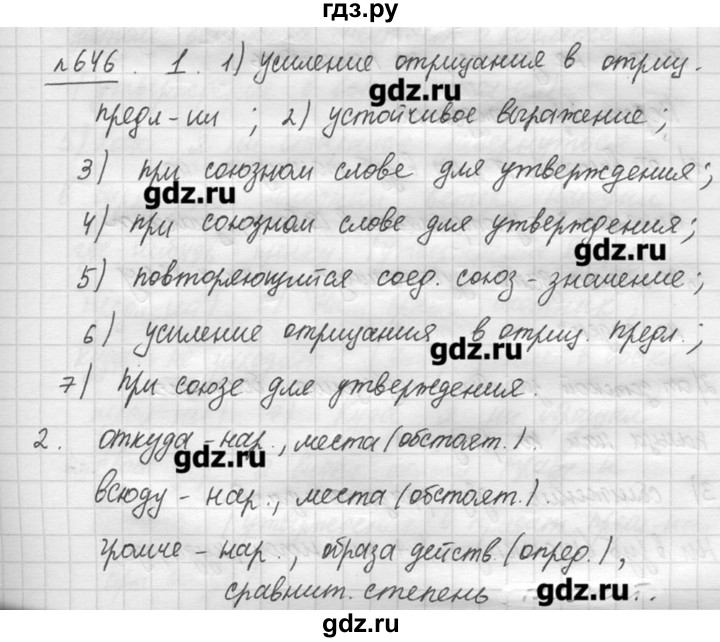 гдз.ру
№646. 1. 1) усиление отрицания в отриц.
gdz.ru
предл-ии ; 2) устойчивое выражение ;
3) при союзном слове для утверждения ;
gdz.ru
4) при союзном слове для утверждения ;
gdz.ru
5) повторяющийся соед. союз - значение ;
6) усиление отрицания в отриц. предл. ;
gdz.ru
7) при союзе для утверждения .
2. откуда - нар., места (обстоят.).
gdz.ru
всюду - нар., места (обстоят.).
громче - нар., образа действ. (опред.),
сравнит. степень
gdz.ru
гдз.ру